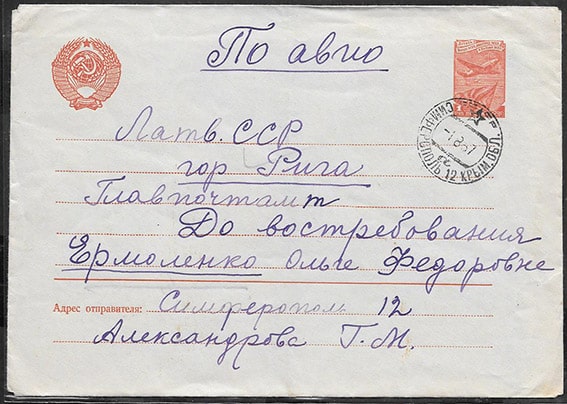 По авио
Латв. ССР
гор Рига
Главпочтамт
До востребования
Ермоленко Ольге Федоровне
Адрес отправителя: Симферополь 12
Александрова Г. М.
СИМФЕРОПОЛЬ 12 КРЫМ. ОБЛ.